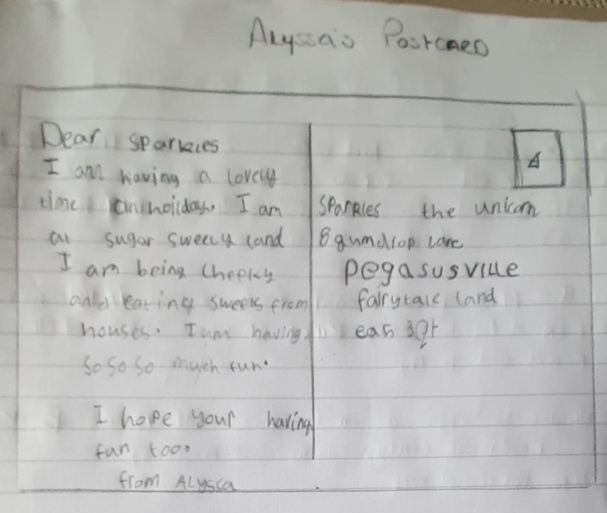 Alyssa's Postcard
Dear Sparkles
I am having a lovely
time on holiday. I am
at sugar sweety land
I am being cheeky
and eating sweets from
houses. I am having
so so so much fun.
I hope your having
fun too.
from Alyssa
Sparkles the unicorn
8 gumdrop lane
pegasusville
fairytale land
ea5 3QT